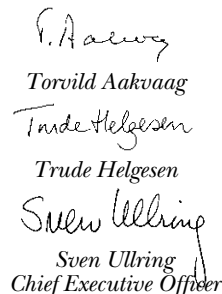 T. Aakvaag
Torvild Aakvaag
Trude Helgesen
Trude Helgesen
Sven Ullring
Sven Ullring
Chief Executive Officer